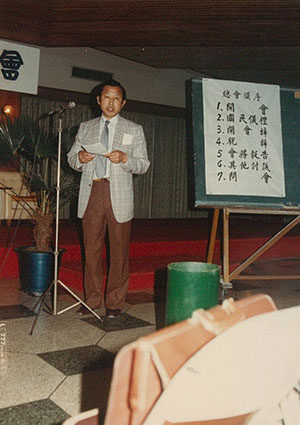 會
總會順序
1. 開會
2. 國民儀禮
3. 開會辭
4. 祝辭
5 會務報告
6. 其他討議
7. 閉會